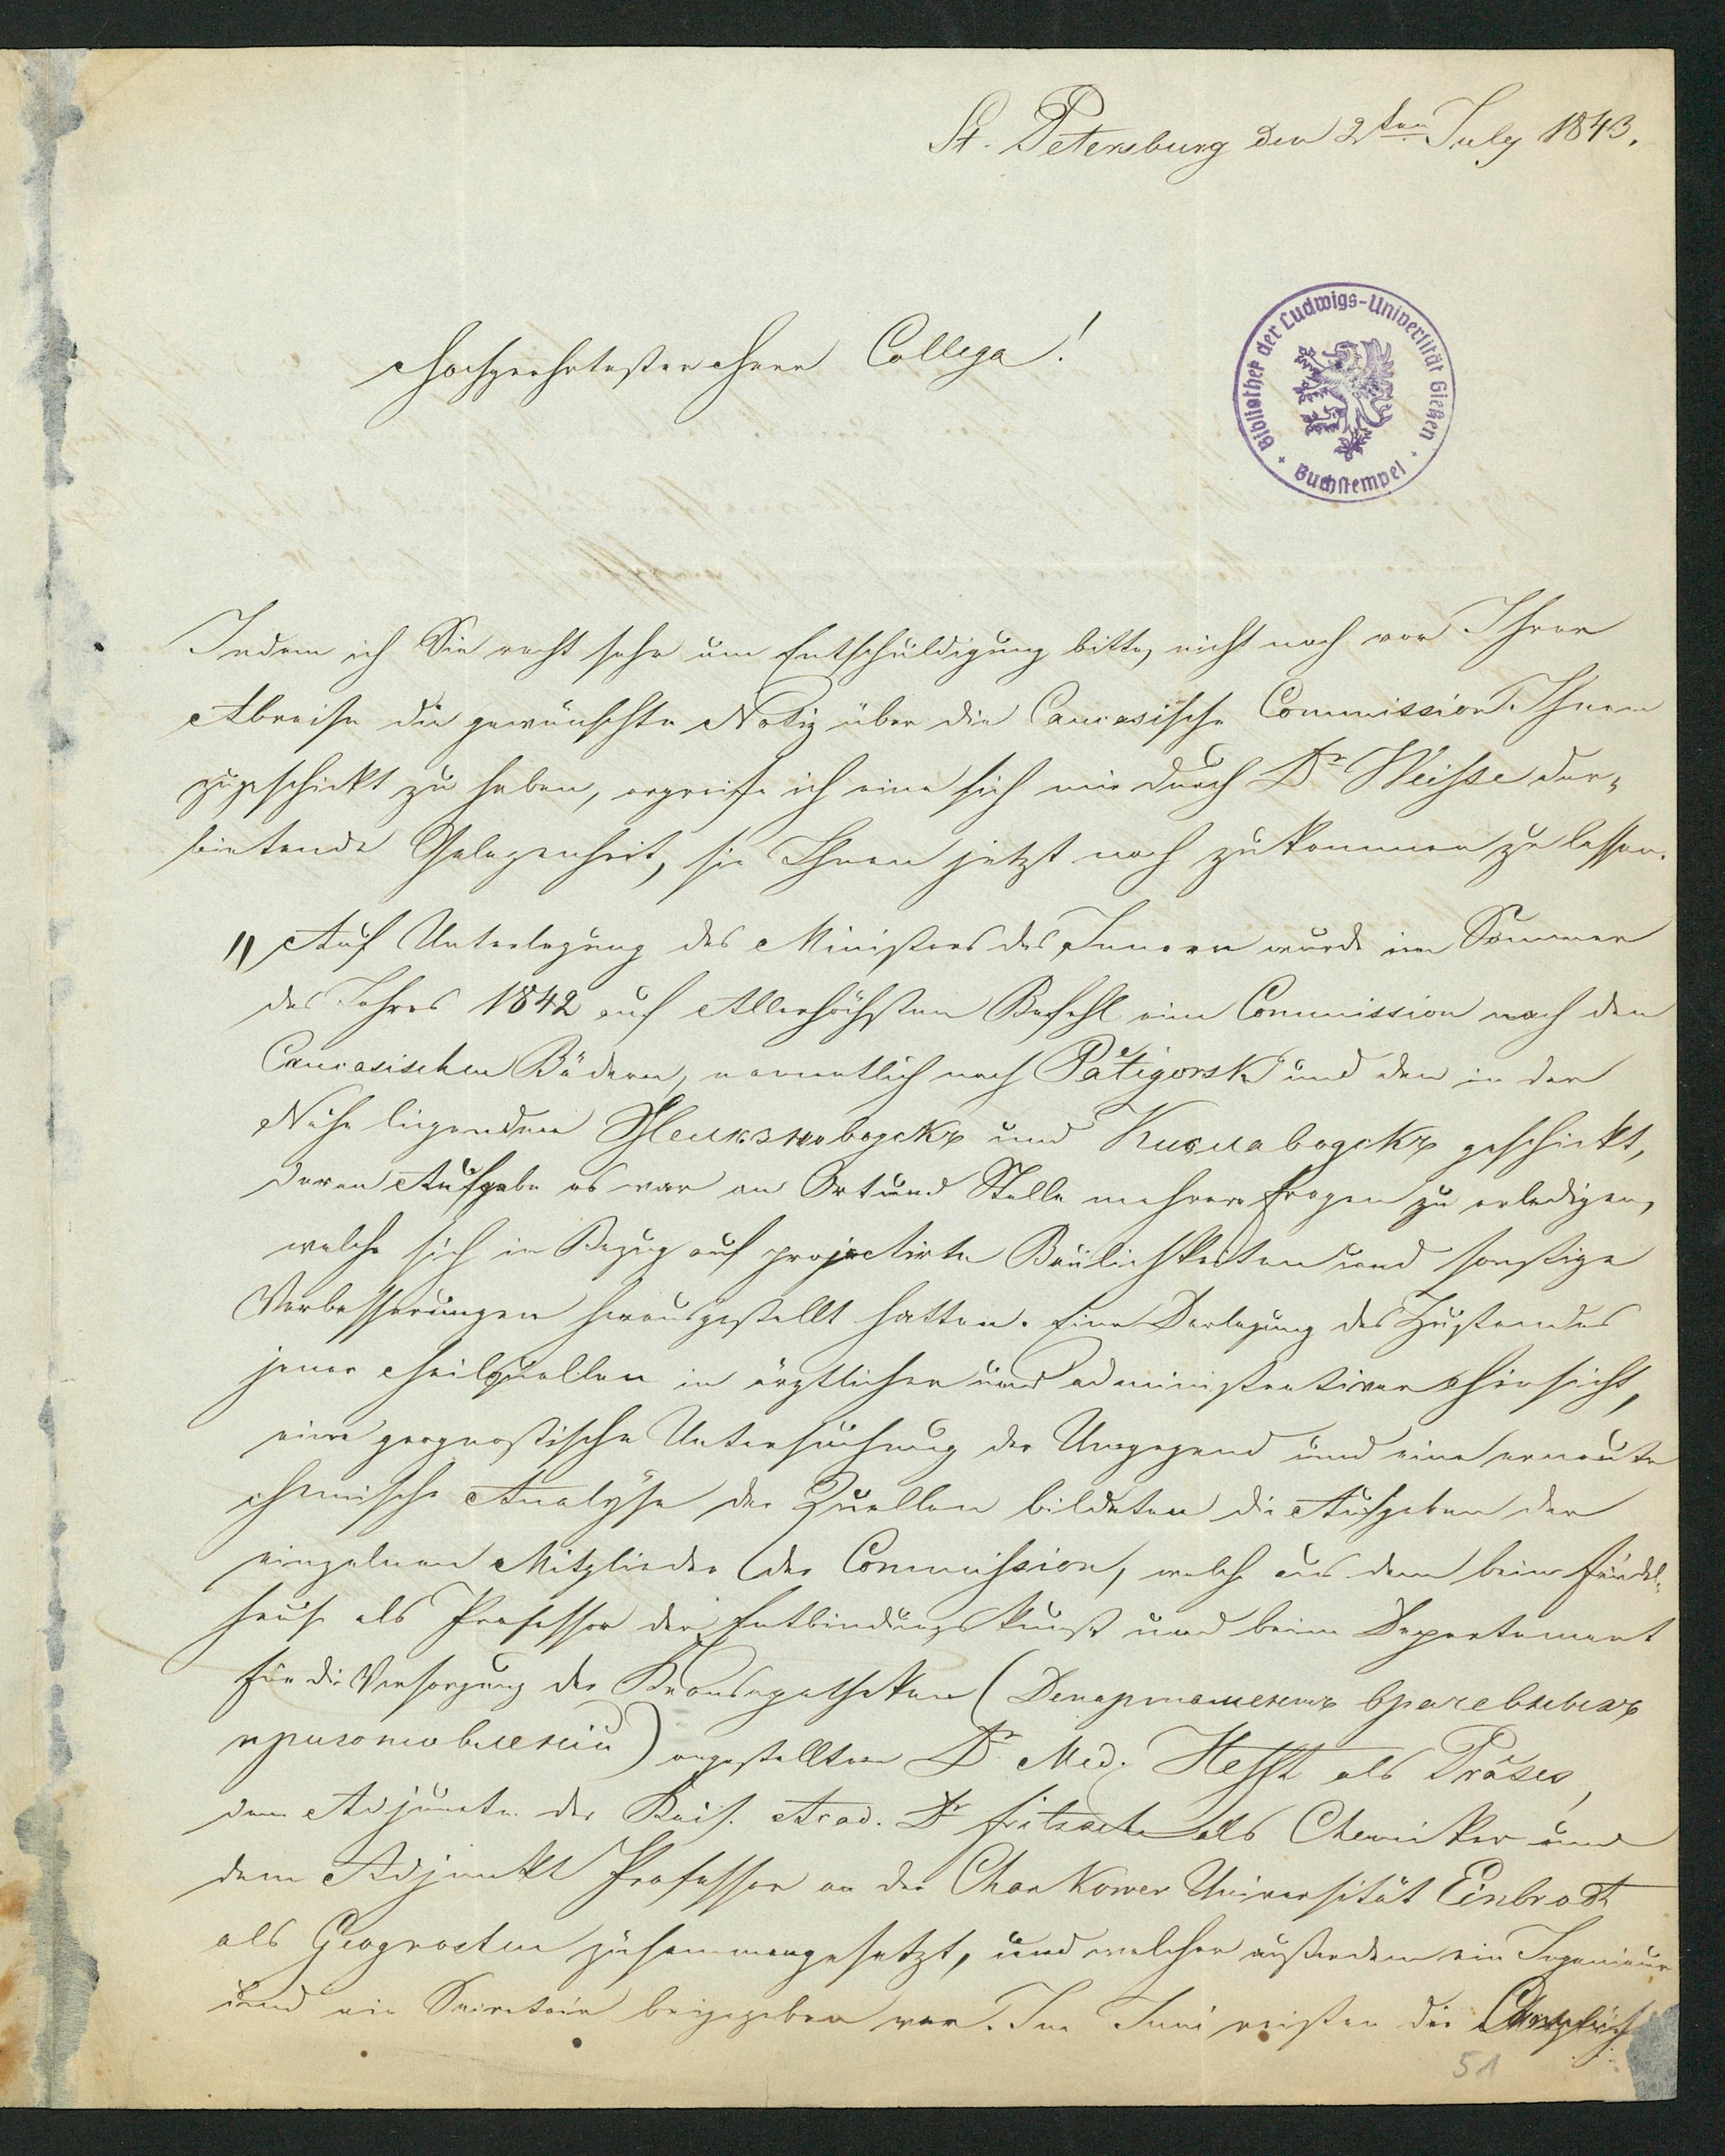 St. Petersburg den 2ten July 1843.
Hochgeehrtester Herr Collega!
Bibliothek der Ludwigs-Universität Gießen
Buchstempel
Indem ich Sie recht sehr um Entschuldigung bitte, nicht noch vor Ihrer
Abreise die gewünschte Notiz über die Caucasische Commission Ihnen
zugeschickt zu haben, ergreife ich eine sich mir durch Dr Weisse dar-
bietende Gelegenheit, sie Ihnen jetzt noch zukommen zu lassen.
" Auf Unterlegung des Ministers des Innern wurde im Sommer
des Jahres 1842 auf Allerhöchsten Befehl eine Commission nach den
Caucasischen Bädern, namentlich nach Pätigorsk und den in der
Nähe liegenden Желѣзноводскъ und Кисловодскъ geschickt,
deren Aufgabe es war an Ort und Stelle mehrere Fragen zu erledigen,
welche sich in Bezug auf projectirte Baulichkeiten und sonstige
Verbesserungen herausgestellt hatten. Eine Darlegung des Zustandes
jener Heilquellen in ärztlicher und administrativer Hinsicht,
eine geognostische Untersuchung der Umgegend und eine erneute
chemische Analyse der Quellen bildeten die Aufgaben der
einzelnen Mitglieder der Commission, welche aus dem beim Findel-
hause als Professor der Entbindungskunst und beim Departement
für die Versorgung der Kronsapotheken (Департаментъ врачебныхъ
приготовленій) angestellten Dr. Med. Hefft als Präses,
dem Adjuncten der Kais. Acad. Dr Fritzsche als Chemiker und
dem Adjunkt Professor an der Charkower Universität Einbrodt
als Geognosten zusammengesetzt, und welcher außerdem ein Ingenieur
und ein Secretair beigegeben war. Im Juni reisten die
51